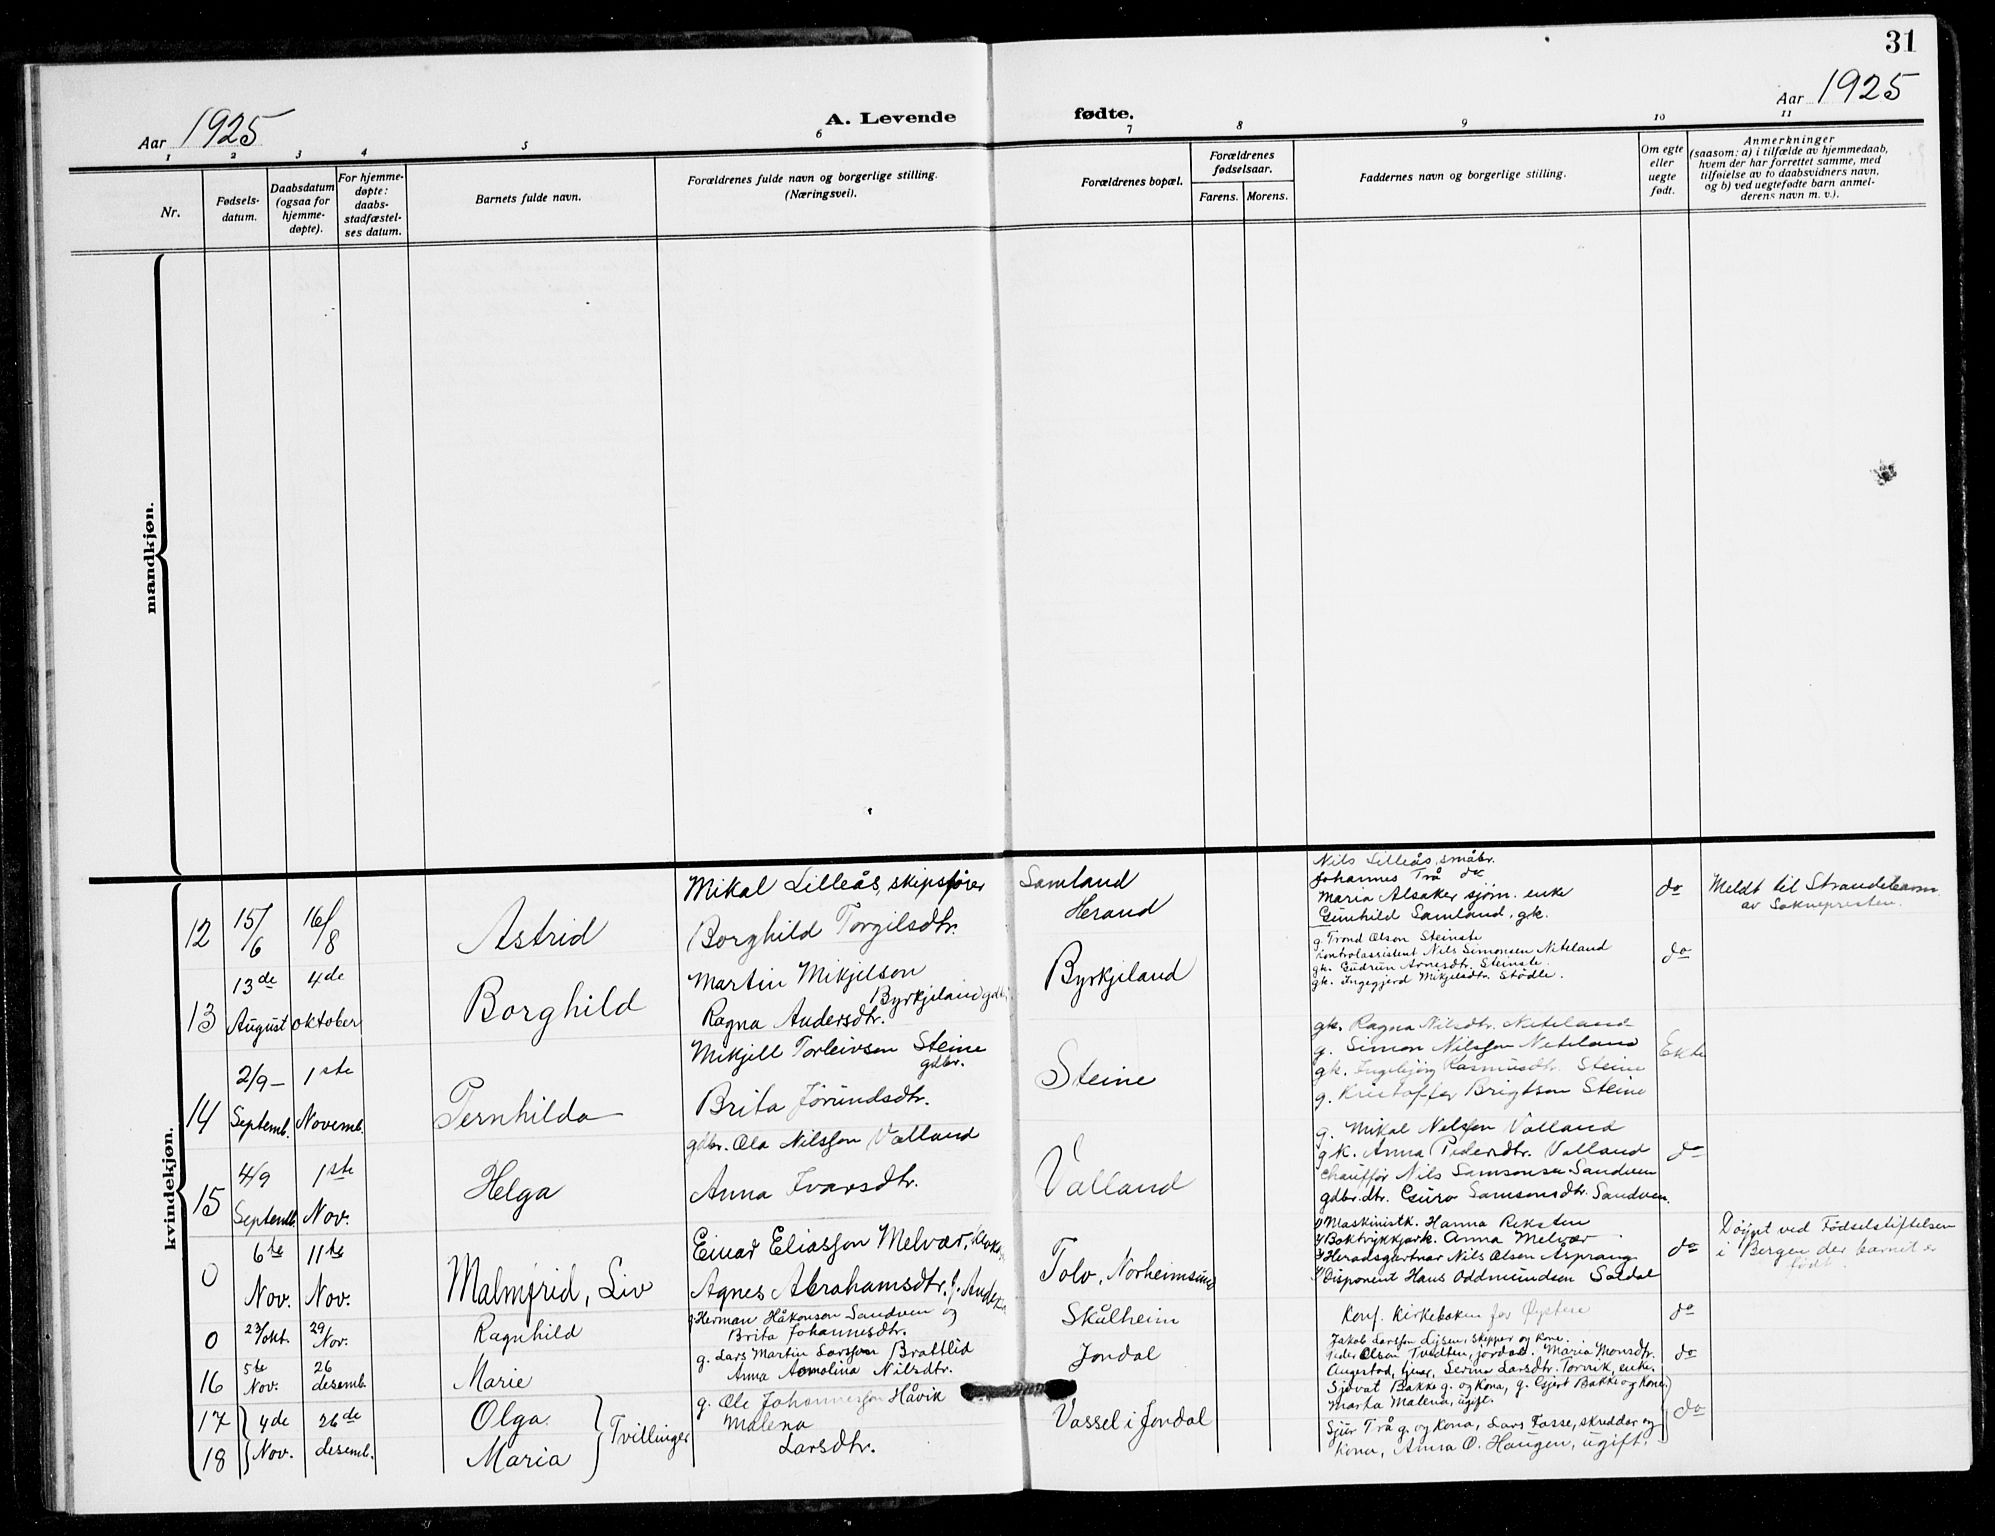 31
Aar 1925
A. Levende fødte.
Aar 1925
1 2 3 4 5 6 7 8 9 10 11
Nr.
Fødsels-
datum.
Daabsdatum
(ogsaa for
hjemme-
døpte).
For hjemme-
døpte:
daabs-
stadfæstel-
ses datum.
Barnets fulde navn.
Forældrenes fulde navn og borgerlige stilling.
(Næringsvei).
Forældrenes bopæl.
Forældrenes
fødselsaar.
Farens. Morens.
Faddernes navn og borgerlige stilling.
Om egte
eller
uegte
født.
Anmerkninger
(saasom: a) i tilfælde av hjemmedaab,
hvem der har forrettet samme, med
tilføielse av to daabsvidners navn,
og b) ved uegtefødte barn anmel-
derens navn m. v.).
mandkjøn.
kvindekjøn.
12 15/6 16/8 Astrid
Mikal Lilleås, skipsfører
Borghild Torgilsdtr.
Samland
Herand
Nils Lilleås, småbr.
Johannes Trå do
Maria Alsaker sjøm. enke
Gunhild Samland, gk.
do
Meldt til Strandebarm
av Soknepresten.
13 13de August 4de oktober Borghild
Martin Mikjelson
Byrkjeland gdbr.
Ragna Andersdtr.
Byrkjeland
g. Trond Olson Steinstø
Kontrolassistent Nils Simonsen Neteland
gk. Gudrun Arnesdtr. Steinstø.
gk. Ingegjerd Mikjelsdtr. Stødle.
do
14 2/9 – Septemb. 1ste Novemb. Pernhilda
Mikjell Torleivsen Steine
gdbr.
Brita Jørundsdtr.
Steine
gk. Ragna Nilsdtr. Neteland
g. Simon Nilssen Neteland
gk. Ingebjørg Rasmusdtr. Steine
g. Kristoffer Brigtson Steine
Ekte
15 4/9 Septemb. 1ste Nov. Helga
gdbr. Ola Nilssen Valland
Anna Ivarsdtr.
Valland
g. Mikal Nelsen Valland
gk. Anna Pedersdtr. Valland
Chauffør Nils Samsonsen Sandven
gdbr.dtr. Guro Samsonsdtr. Sandven.
do
0 6te Nov. 11te Nov. Malmfrid, Liv
Einar Eliassen Melvær,
Agnes Abrahamsdtr. f.
Tolo, Norheimsund
1) Maskinistk. Hanna Reksten
2) Boktrykkjark. Anna Melvær
3) Heradsgartnar Nils Olsen Asprang
4) Disponent Hans Oddmundsen Soldal
do
Døypt ved Fødselstiftelsen
i Bergen der barnet er
født.
0 23/okt. 29 Nov. Ragnhild
g. Herman Håkonson Sandven og
Brita Johannesdtr.
Skålheim
Konf. Kirkeboken for Øystese
do
16 5te Nov. 26 desemb. Marie
g. Lars Martin Larssen Brattlid
Anna Nilsdtr.
Jondal
Jakob Larssen skipper og kone.
Peder Olsen Tvedten, Jondal. Maria Monsdtr.
Augestad, tjener, Serina Larsdtr. Torvik, enke.
do
17 4de Nov. 26de desemb. Olga
18 Maria
Tvillinger
g. Ole Johannessen Håvik
Malena
Larsdtr.
Vassel i Jondal
Sjovat Bakke g. og Kona, g. Gjert Bakke og Kone.
Marta Malena, ugift.
Sjur Trå g. og Kona, Lars Fosse, skredder og
Kona, Anna O. Haugen, ugift.
do